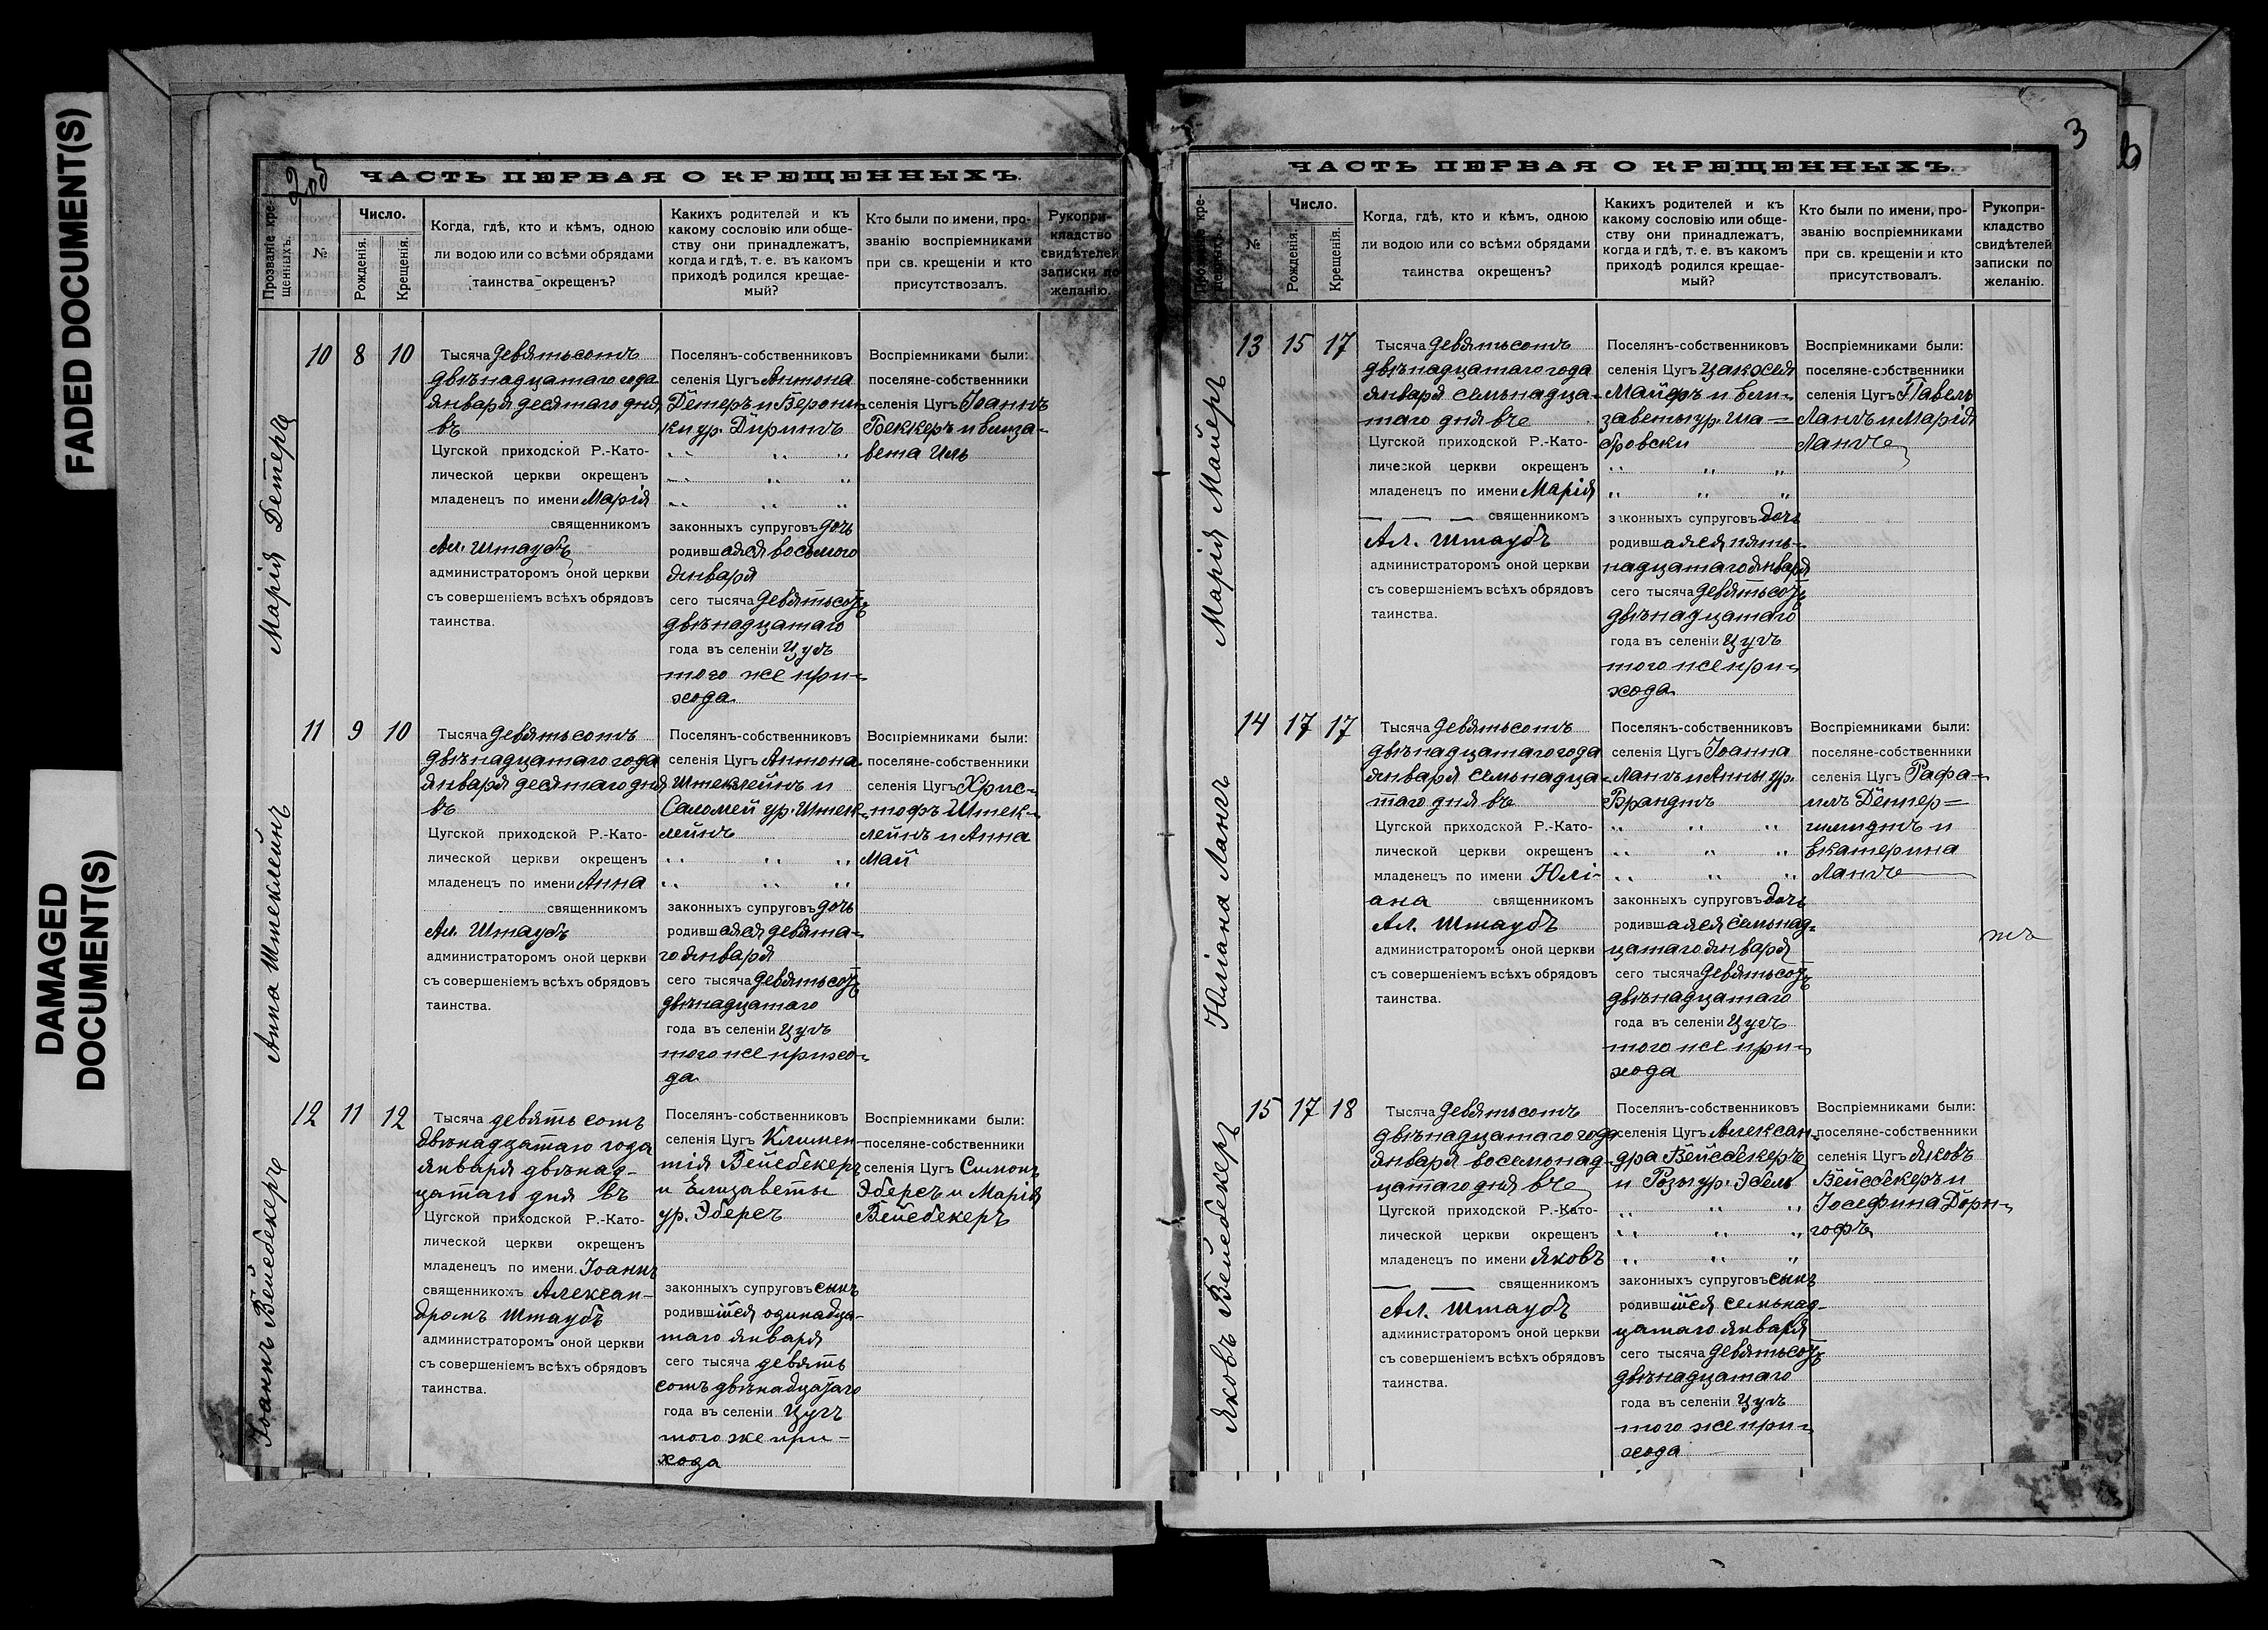 FADED DOCUMENT(S)
DAMAGED
DOCUMENT(S)
2 об
ЧАСТЬ ПЕРВАЯ О КРЕЩЕННЫХЪ.
Прозваніе кре-
щенныхъ.
№
Число.
Рожденія.
Крещенія.
Когда, гдѣ, кто и кѣмъ, одною
ли водою или со всѣми обрядами
таинства окрещенъ?
Какихъ родителей и къ
какому сословію или обще-
ству они принадлежатъ,
когда и гдѣ, т. е. въ какомъ
приходѣ родился крещае-
мый?
Кто были по имени, про-
званію воспріемниками
при св. крещеніи и кто
присутствовалъ.
Рукопри-
кладство
свидѣтелей
записки по
желанію.
Марія Детеръ
10 8 10
Тысяча девятьсотъ
двѣнадцатаго года
января десятаго дня
въ
Цугской приходской Р.-Като-
лической церкви окрещенъ
младенецъ по имени Марія
священникомъ
Ал. Штаубъ
администраторомъ оной церкви
съ совершеніемъ всѣхъ обрядовъ
таинства.
Поселянъ-собственниковъ
селенія Цугъ Антона
Детеръ и Верони-
ки ур. Дирингъ
законныхъ супруговъ дочь
родившаяся восьмого
января
сего тысяча девятьсотъ
двѣнадцатаго
года въ селеніи Цугъ
того же при-
хода
Воспріемниками были:
поселяне-собственники
селенія Цугъ Іоаннъ
Беккеръ и Елиза-
вета Иль
Анна Штеклейнъ
11 9 10
Тысяча девятьсотъ
двѣнадцатаго года
января десятаго дня
въ
Цугской приходской Р.-Като-
лической церкви окрещенъ
младенецъ по имени Анна
священникомъ
Ал. Штаубъ
администраторомъ оной церкви
съ совершеніемъ всѣхъ обрядовъ
таинства.
Поселянъ-собственниковъ
селенія Цугъ Антона
Штеклейнъ и
Саломеи ур. Штек-
лейнъ
законныхъ супруговъ дочь
родившаяся девята-
го января
сего тысяча девятьсотъ
двѣнадцатаго
года въ селеніи Цугъ
того же прихо-
да
Воспріемниками были:
поселяне-собственники
селенія Цугъ Хрис-
тофъ Штек-
лейнъ и Анна
Май
Іоаннъ Вейсбекеръ
12 11 12
Тысяча девять сотъ
двѣнадцатаго года
января двѣнад-
цатаго дня въ
Цугской приходской Р.-Като-
лической церкви окрещенъ
младенецъ по имени Іоаннъ
священникомъ Алексан-
дромъ Штаубъ
администраторомъ оной церкви
съ совершеніемъ всѣхъ обрядовъ
таинства.
Поселянъ-собственниковъ
селенія Цугъ Климен-
тія Вейсбекеръ
и Елизаветы
ур. Эберсъ
законныхъ супруговъ сынъ
родившійся одинадца-
таго января
сего тысяча девять
сотъ двѣнадцатаго
года въ селеніи Цугъ
того же при-
хода
Воспріемниками были:
поселяне-собственники
селенія Цугъ Симонъ
Эберсъ и Марія
Вейсбекеръ
3
ЧАСТЬ ПЕРВАЯ О КРЕЩЕННЫХЪ.
Прозваніе кре-
щенныхъ.
№
Число.
Рожденія.
Крещенія.
Когда, гдѣ, кто и кѣмъ, одною
ли водою или со всѣми обрядами
таинства окрещенъ?
Какихъ родителей и къ
какому сословію или обще-
ству они принадлежатъ,
когда и гдѣ, т. е. въ какомъ
приходѣ родился крещае-
мый?
Кто были по имени, про-
званію воспріемниками
при св. крещеніи и кто
присутствовалъ.
Рукопри-
кладство
свидѣтелей
записки по
желанію.
Марія Майеръ
13 15 17
Тысяча девятьсотъ
двѣнадцатаго года
января семьнадца-
таго дня въ
Цугской приходской Р.-Като-
лической церкви окрещенъ
младенецъ по имени Марія
священникомъ
Ал. Штаубъ
администраторомъ оной церкви
съ совершеніемъ всѣхъ обрядовъ
таинства.
Поселянъ-собственниковъ
селенія Цугъ
Майеръ и Ели-
заветы ур. Ша-
бровски
законныхъ супруговъ дочь
родившаяся пять-
надцатаго января
сего тысяча девятьсотъ
двѣнадцатаго
года въ селеніи Цугъ
того же при-
хода
Воспріемниками были:
поселяне-собственники
селенія Цугъ Павелъ
Лангъ и Марія
Лангъ
Юліана Лангъ
14 17 17
Тысяча девятьсотъ
двѣнадцатаго года
января семьнадца-
таго дня въ
Цугской приходской Р.-Като-
лической церкви окрещенъ
младенецъ по имени Юлі-
ана священникомъ
Ал. Штаубъ
администраторомъ оной церкви
съ совершеніемъ всѣхъ обрядовъ
таинства.
Поселянъ-собственниковъ
селенія Цугъ Іоанна
Лангъ и Анны ур.
Брандтъ
законныхъ супруговъ дочь
родившаяся семьнад-
цатаго января
сего тысяча девятьсотъ
двѣнадцатаго
года въ селеніи Цугъ
того же при-
хода
Воспріемниками были:
поселяне-собственники
селенія Цугъ Рафа-
илъ Деппер-
шмидтъ и
Екатерина
Лангъ
тъ
Яковъ Вейсбекеръ
15 17 18
Тысяча девятьсотъ
двѣнадцатаго года
января восемьнад-
цатаго дня въ
Цугской приходской Р.-Като-
лической церкви окрещенъ
младенецъ по имени Яковъ
священникомъ
Ал. Штаубъ
администраторомъ оной церкви
съ совершеніемъ всѣхъ обрядовъ
таинства.
Поселянъ-собственниковъ
селенія Цугъ Алексан-
дра Вейсбекеръ
и Розы ур. Эбель
законныхъ супруговъ сынъ
родившійся семьнад-
цатаго января
сего тысяча девятьсотъ
двѣнадцатаго
года въ селеніи Цугъ
того же при-
хода
Воспріемниками были:
поселяне-собственники
селенія Цугъ Яковъ
Вейсбекеръ и
Іосефина Дорн-
гофъ